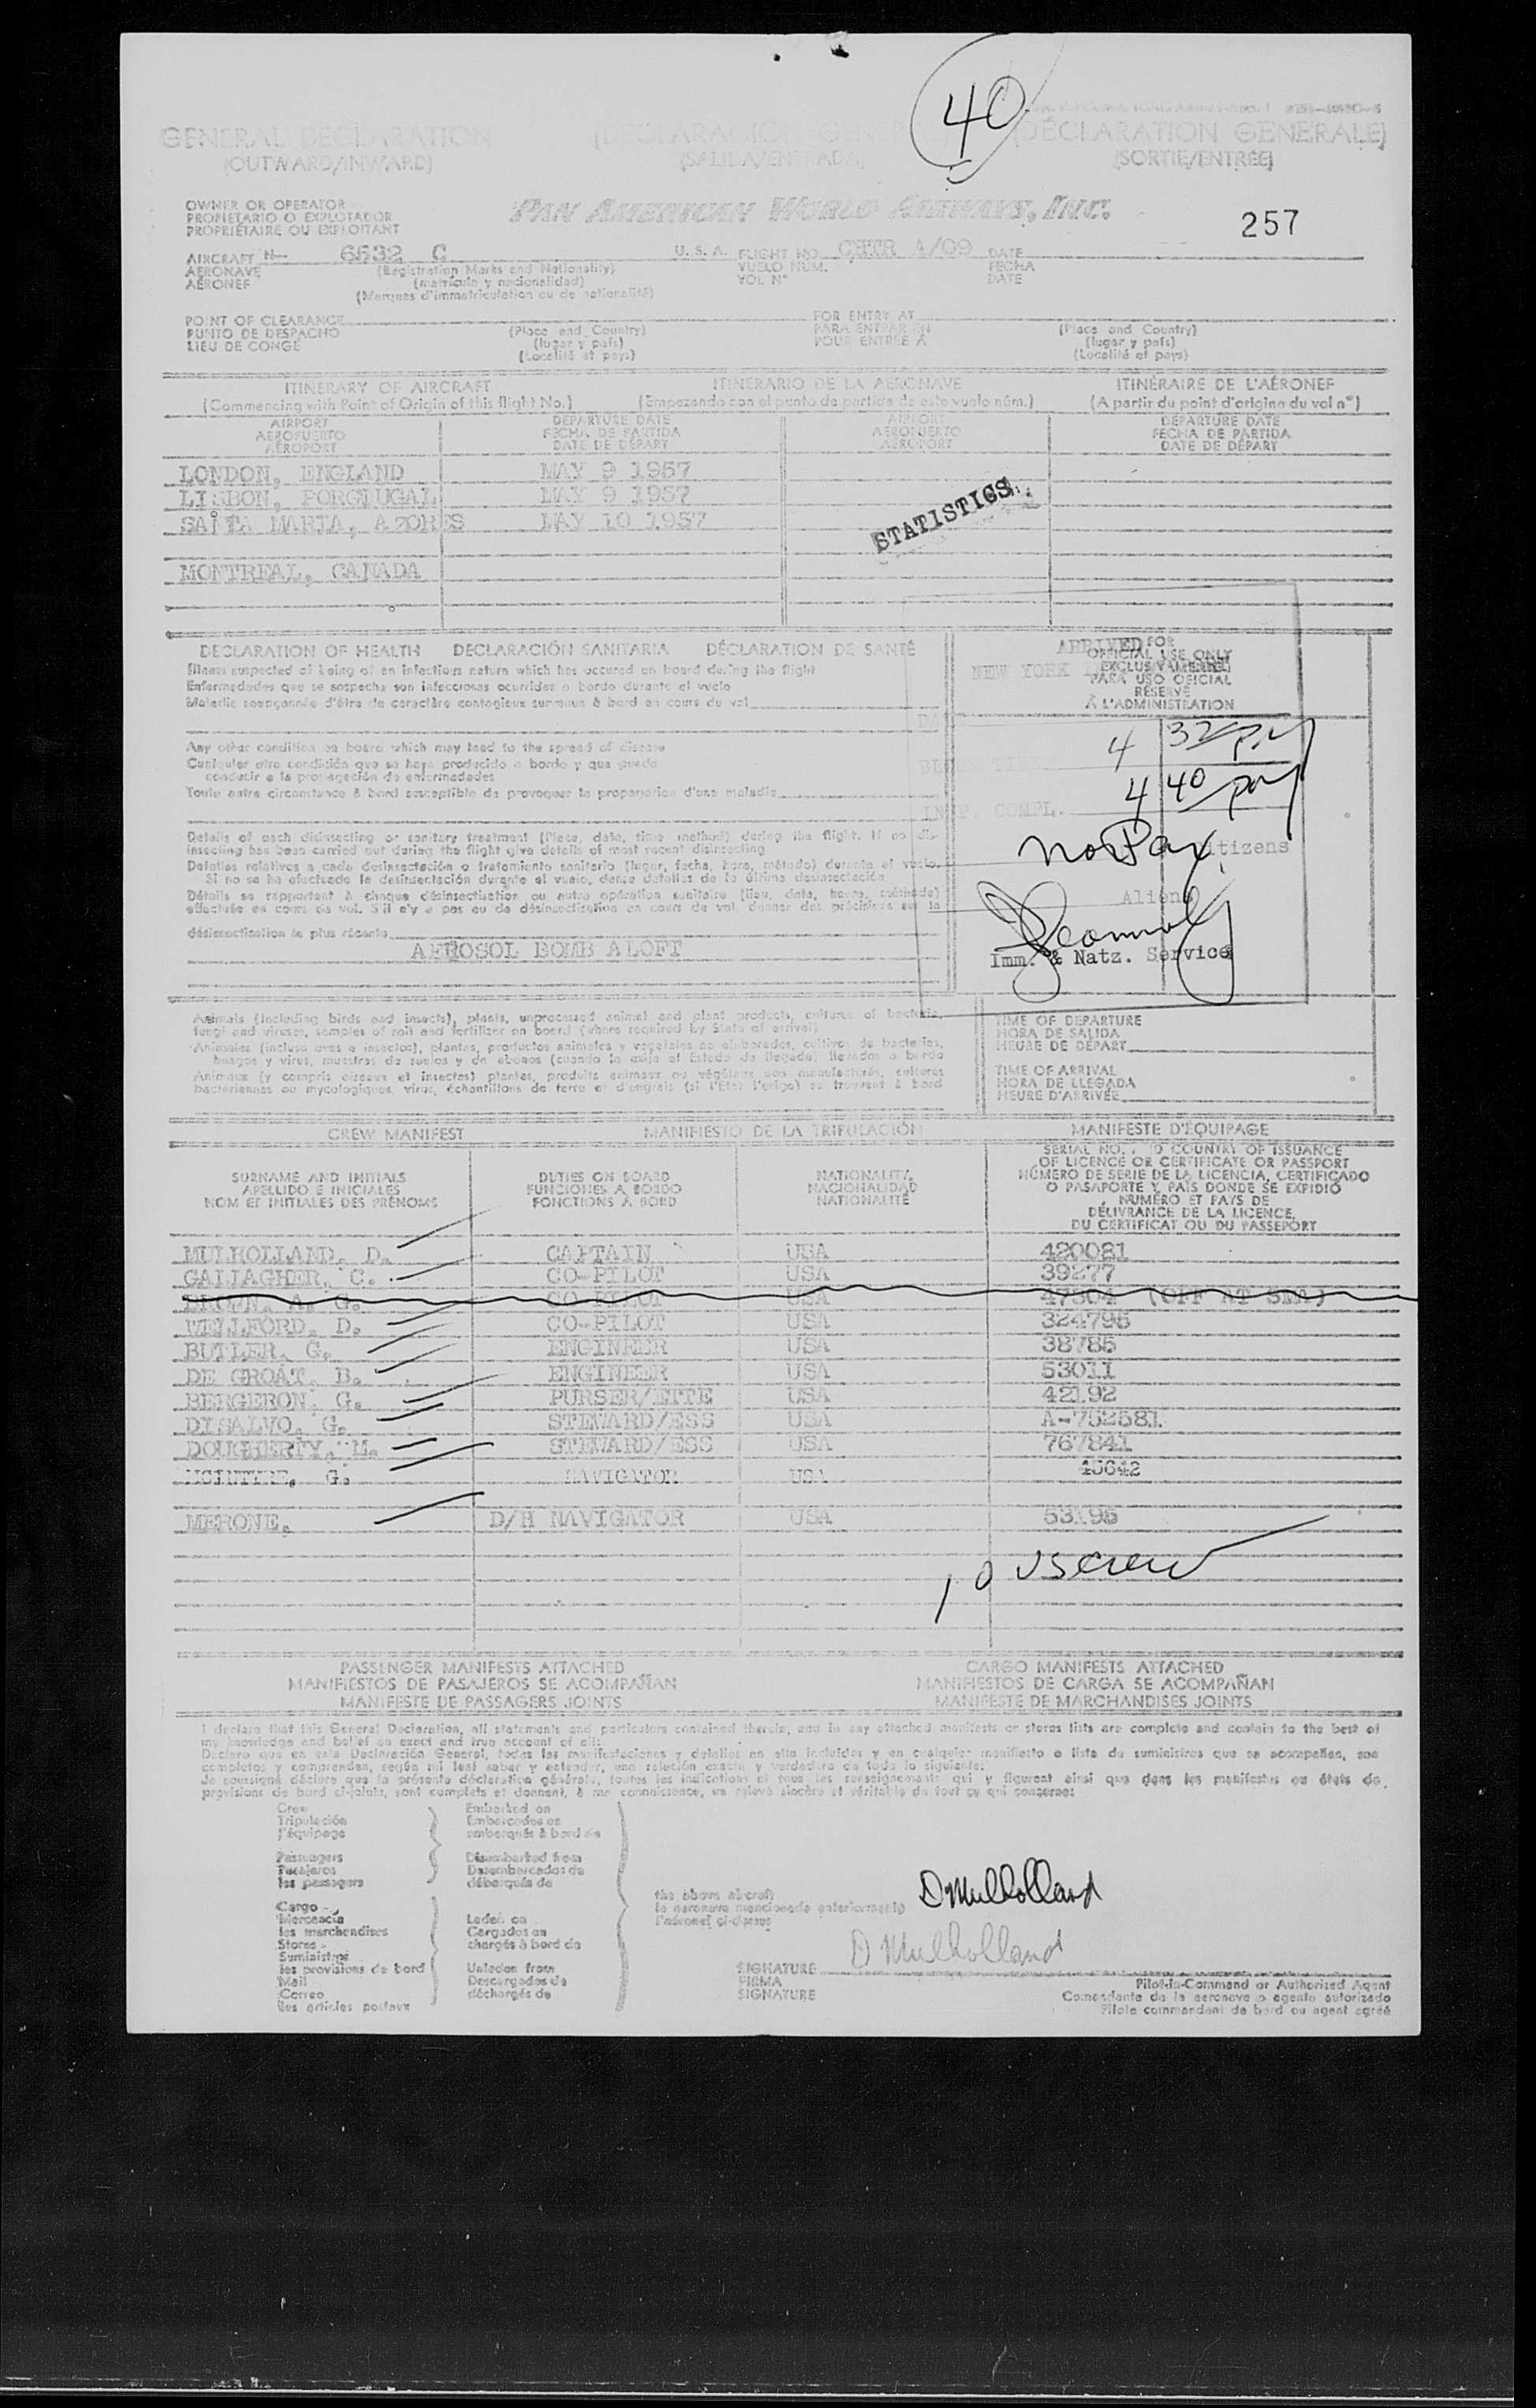 40
GENERAL DECLARATION (DECLARACIÓN (DÉCLARATION GÉNÉRALE)
(OUTWARD/INWARD) (SALIDA/ENTRADA) (SORTIE/ENTRÉE)
OWNER OR OPERATOR
PROPIETARIO O EXPLOTADOR
PROPRIÉTAIRE OU EXPLOITANT
PAN AMERICAN WORLD AIRWAYS, INC.
257
AIRCRAFT N- 6532 C U. S. A. FLIGHT NO. CHTR A/09 DATE
AERONAVE (Registration Marks and Nationality) VUELO NÚM. FECHA
AÉRONEF (matrícula y nacionalidad) VOL Nº DATE
(Marques d'immatriculation ou de nationalité)
POINT OF CLEARANCE FOR ENTRY AT
PUNTO DE DESPACHO (Place and Country) PARA ENTRAR EN (Place and Country)
LIEU DE CONGÉ (lugar y país) POUR ENTRÉE À (lugar y país)
(Localité et pays) (Localité et pays)
ITINERARY OF AIRCRAFT ITINERARIO DE LA AERONAVE ITINÉRAIRE DE L'AÉRONEF
(Commencing with Point of Origin of this flight No.) (Empezando con el punto de partida de este vuelo núm.) (A partir du point d'origine du vol nº)
AIRPORT DEPARTURE DATE AIRPORT DEPARTURE DATE
AEROPUERTO FECHA DE PARTIDA AEROPUERTO FECHA DE PARTIDA
AÉROPORT DATE DE DÉPART AÉROPORT DATE DE DÉPART
LONDON, ENGLAND MAY 9 1957
LISBON, PORTUGAL MAY 9 1957
SANTA MARIA, AZORES MAY 10 1957
STATISTICS
MONTREAL, CANADA
DECLARATION OF HEALTH DECLARACIÓN SANITARIA DÉCLARATION DE SANTÉ
Illness suspected of being of an infectious nature which has occured on board during the flight
Enfermedades que se sospecha son infecciosas ocurridas a bordo durante el vuelo
Maladie soupçonnée d'être de caractère contagieux survenue à bord en cours de vol
ARRIVED FOR
OFFICIAL USE ONLY
NEW YORK
EXCLUSIVAMENTE
PARA USO OFICIAL
RÉSERVÉ
À L'ADMINISTRATION
Any other condition on board which may lead to the spread of disease
Cualquier otra condición que se haya producido a bordo y que pueda
conducir a la propagación de enfermedades
Toute autre circonstance à bord susceptible de provoquer la propagation d'une maladie
4 32 pm
4 40 pm
COMPL.
No Pax
Citizens
Aliens
Imm. & Natz. Service
Details of each disinsecting or sanitary treatment (Place, date, time method) during the flight. If no dis-
insecting has been carried out during the flight give details of most recent disinsecting
Detalles relativos a cada desinsectación o tratamiento sanitario (lugar, fecha, hora, método) durante el vuelo.
Si no se ha efectuado la desinsectación durante el vuelo, dense detalles de la última desinsectación
Détails se rapportant à chaque désinsectisation ou autre opération sanitaire (lieu, date, heure, méthode)
effectuée en cours de vol. S'il n'y a pas eu de désinsectisation en cours de vol, donner des précisions sur la
désinsectisation la plus récente
AEROSOL BOMB ALOFT
Animals (including birds and insects), plants, unprocessed animal and plant products, cultures of bacteria,
fungi and viruses, samples of soil and fertilizer on board (where required by State of arrival)
Animales (incluso aves e insectos), plantas, productos animales y vegetales no elaborados, cultivos de bacterias,
hongos y virus, muestras de suelos y de abonos (cuando lo exija el Estado de llegada) llevados a bordo
Animaux (y compris oiseaux et insectes) plantes, produits animaux ou végétaux non manufacturés, cultures
bactériennes ou mycologiques, virus, échantillons de terre et d'engrais (si l'État l'exige) se trouvant à bord
TIME OF DEPARTURE
HORA DE SALIDA
HEURE DE DÉPART
TIME OF ARRIVAL
HORA DE LLEGADA
HEURE D'ARRIVÉE
CREW MANIFEST MANIFIESTO DE LA TRIPULACIÓN MANIFESTE D'ÉQUIPAGE
SURNAME AND INITIALS
APELLIDO E INICIALES
NOM ET INITIALES DES PRÉNOMS
DUTIES ON BOARD
FUNCIONES A BORDO
FONCTIONS À BORD
NATIONALITY
NACIONALIDAD
NATIONALITÉ
SERIAL NO. COUNTRY OF ISSUANCE
OF LICENCE OR CERTIFICATE OR PASSPORT
NÚMERO DE SERIE DE LA LICENCIA, CERTIFICADO
O PASAPORTE Y PAÍS DONDE SE EXPIDIÓ
NUMÉRO ET PAYS DE
DÉLIVRANCE DE LA LICENCE,
DU CERTIFICAT OU DU PASSEPORT
MULHOLLAND, D. CAPTAIN USA 420081
GALLAGHER, C. CO-PILOT USA 39277
A. G. CO-PILOT USA 47304 (OFF AT SMA)
WELLFORD, D. CO-PILOT USA 324795
BUTLER, G. ENGINEER USA 38785
DE GROAT, B. ENGINEER USA 53011
BERGERON, G. PURSER/ETTE USA 42192
DISALVO, G. STEWARD/ESS USA A-752581
DOUGHERTY, M. STEWARD/ESS USA 767841
MCINTYRE, G. NAVIGATOR USA 45642
MERONE, D/H NAVIGATOR USA 53195
10 US Crew
PASSENGER MANIFESTS ATTACHED CARGO MANIFESTS ATTACHED
MANIFIESTOS DE PASAJEROS SE ACOMPAÑAN MANIFIESTOS DE CARGA SE ACOMPAÑAN
MANIFESTE DE PASSAGERS JOINTS MANIFESTE DE MARCHANDISES JOINTS
I declare that this General Declaration, all statements and particulars contained therein, and in any attached manifests or stores lists are complete and contain to the best of
my knowledge and belief an exact and true account of all:
Declaro que en esta Declaración General, todas las manifestaciones y detalles en ella incluidos y en cualquier manifiesto o lista de suministros que se acompañen, son
completos y comprenden, según mi leal saber y entender, una relación exacta y verdadera de todo lo siguiente:
Je soussigné déclare que la présente déclaration générale, toutes les indications et tous les renseignements qui y figurent ainsi que dans les manifestes ou états de
provisions de bord ci-joints, sont complets et donnent, à ma connaissance, un relevé sincère et véritable de tout ce qui concerne:
Crew Embarked on
Tripulación Embarcados en
l'équipage embarqués à bord de
Passengers Disembarked from
Pasajeros Desembarcados de
les passagers débarqués de
Cargo
Mercancía Laden on
les marchandises Cargados en
Stores chargés à bord de
Suministros
les provisions de bord Unladen from
Mail Descargados de
Correo déchargés de
les articles postaux
the above aircraft
la aeronave mencionada anteriormente
l'aéronef ci-dessus
D Mulholland
D Mulholland
SIGNATURE
FIRMA
SIGNATURE
Pilot-in-Command or Authorized Agent
Comandante de la aeronave o agente autorizado
Pilote commandant de bord ou agent agréé